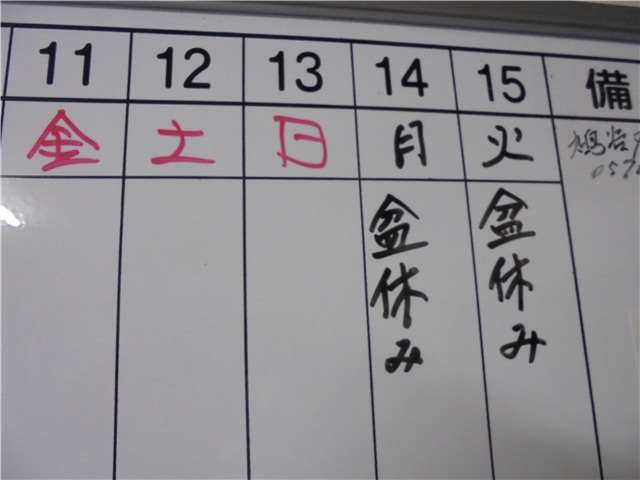 11 12 13 14 15 備
金 土 日 月 火
盆休み 盆休み